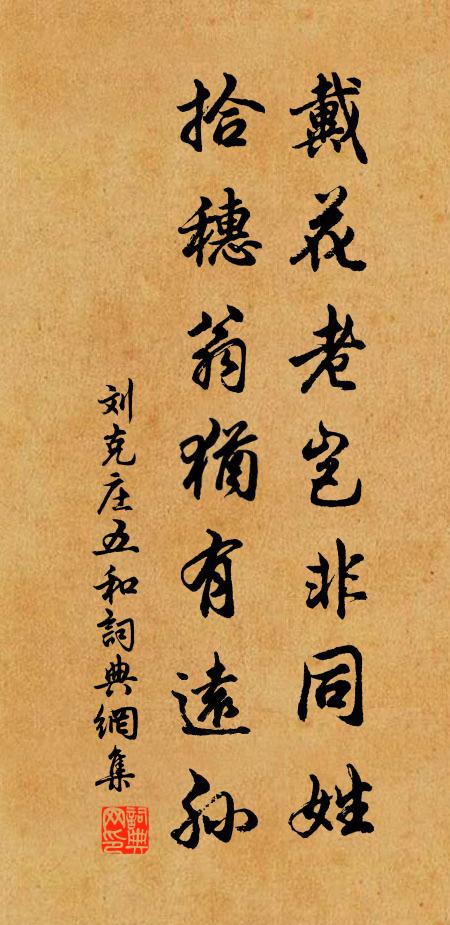 戴花老岂非同姓
拾穗翁犹有遠孙
刘克庄五和詞典網集
詞典網印